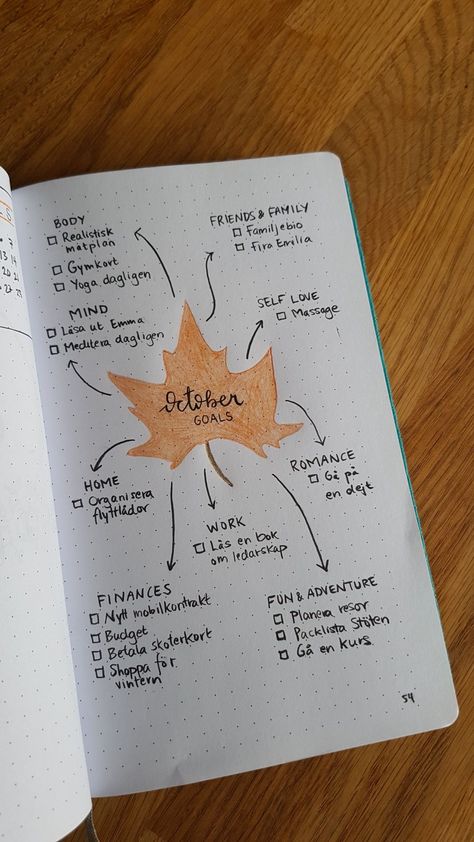 BODY
Realistisk
matplan
Gymkort
Yoga dagligen
FRIENDS & FAMILY
Familjebio
Fira Emilia
MIND
Läsa ut Emma
Meditera dagligen
SELF LOVE
Massage
October
GOALS
HOME
Organisera
flyttlådor
ROMANCE
Gå på
en dejt
WORK
Läs en bok
om ledarskap
FINANCES
Nytt mobilkontrakt
Budget
Betala skoterkort
Shoppa för
vintern
FUN & ADVENTURE
Planera resor
Packlista Stöten
Gå en kurs
54
7
13 14
20 21